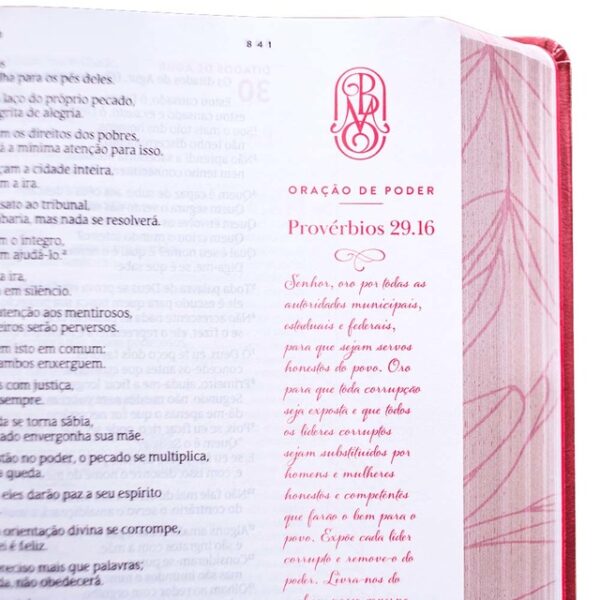 841
lha para os pés deles.
laço do próprio pecado,
grita de alegria.
m os direitos dos pobres,
a mínima atenção para isso.
çam a cidade inteira,
m a ira.
sato ao tribunal,
baria, mas nada se resolverá.
m o íntegro,
m ajudá-lo.ª
a ira,
a em silêncio.
tenção aos mentirosos,
eiros serão perversos.
m isto em comum:
ambos enxerguem.
s com justiça,
sempre.
da se torna sábia,
ado envergonha sua mãe.
stão no poder, o pecado se multiplica,
a queda.
eles darão paz a seu espírito
orientação divina se corrompe,
ei é feliz.
reciso mais que palavras;
da, não obedecerá.
ORAÇÃO DE PODER
Provérbios 29.16
Senhor, oro por todas as
autoridades municipais,
estaduais e federais,
para que sejam servos
honestos do povo. Oro
para que toda corrupção
seja exposta e que todos
os líderes corruptos
sejam substituídos por
homens e mulheres
honestos e competentes
que farão o bem para o
povo. Expõe cada líder
corrupto e remove-o do
poder. Livra-nos do